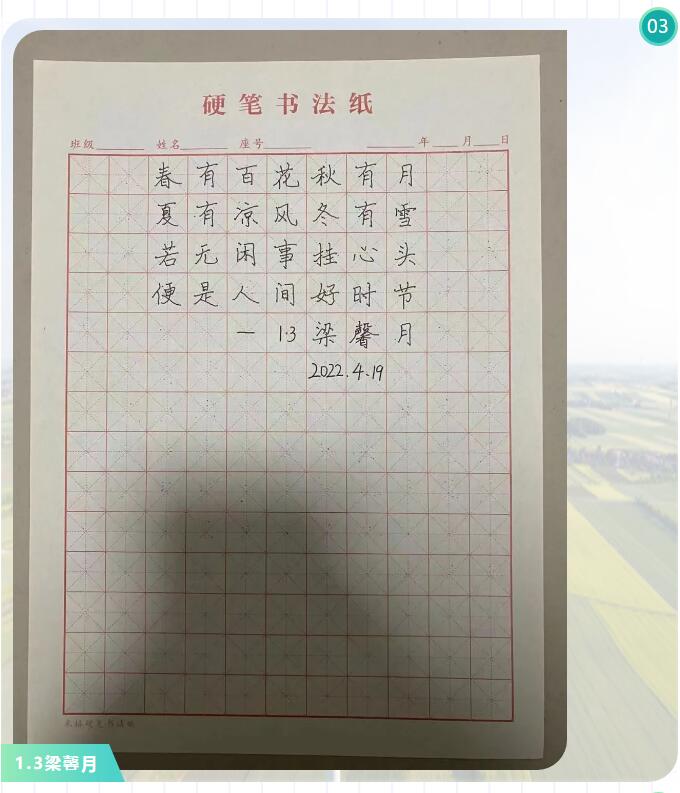 03
硬笔书法纸
班级 姓名 座号 年 月 日
春有百花秋有月
夏有凉风冬有雪
若无闲事挂心头
便是人间好时节
— 1.3 梁馨月
2022.4.19
米格硬笔书法纸
1.3梁馨月